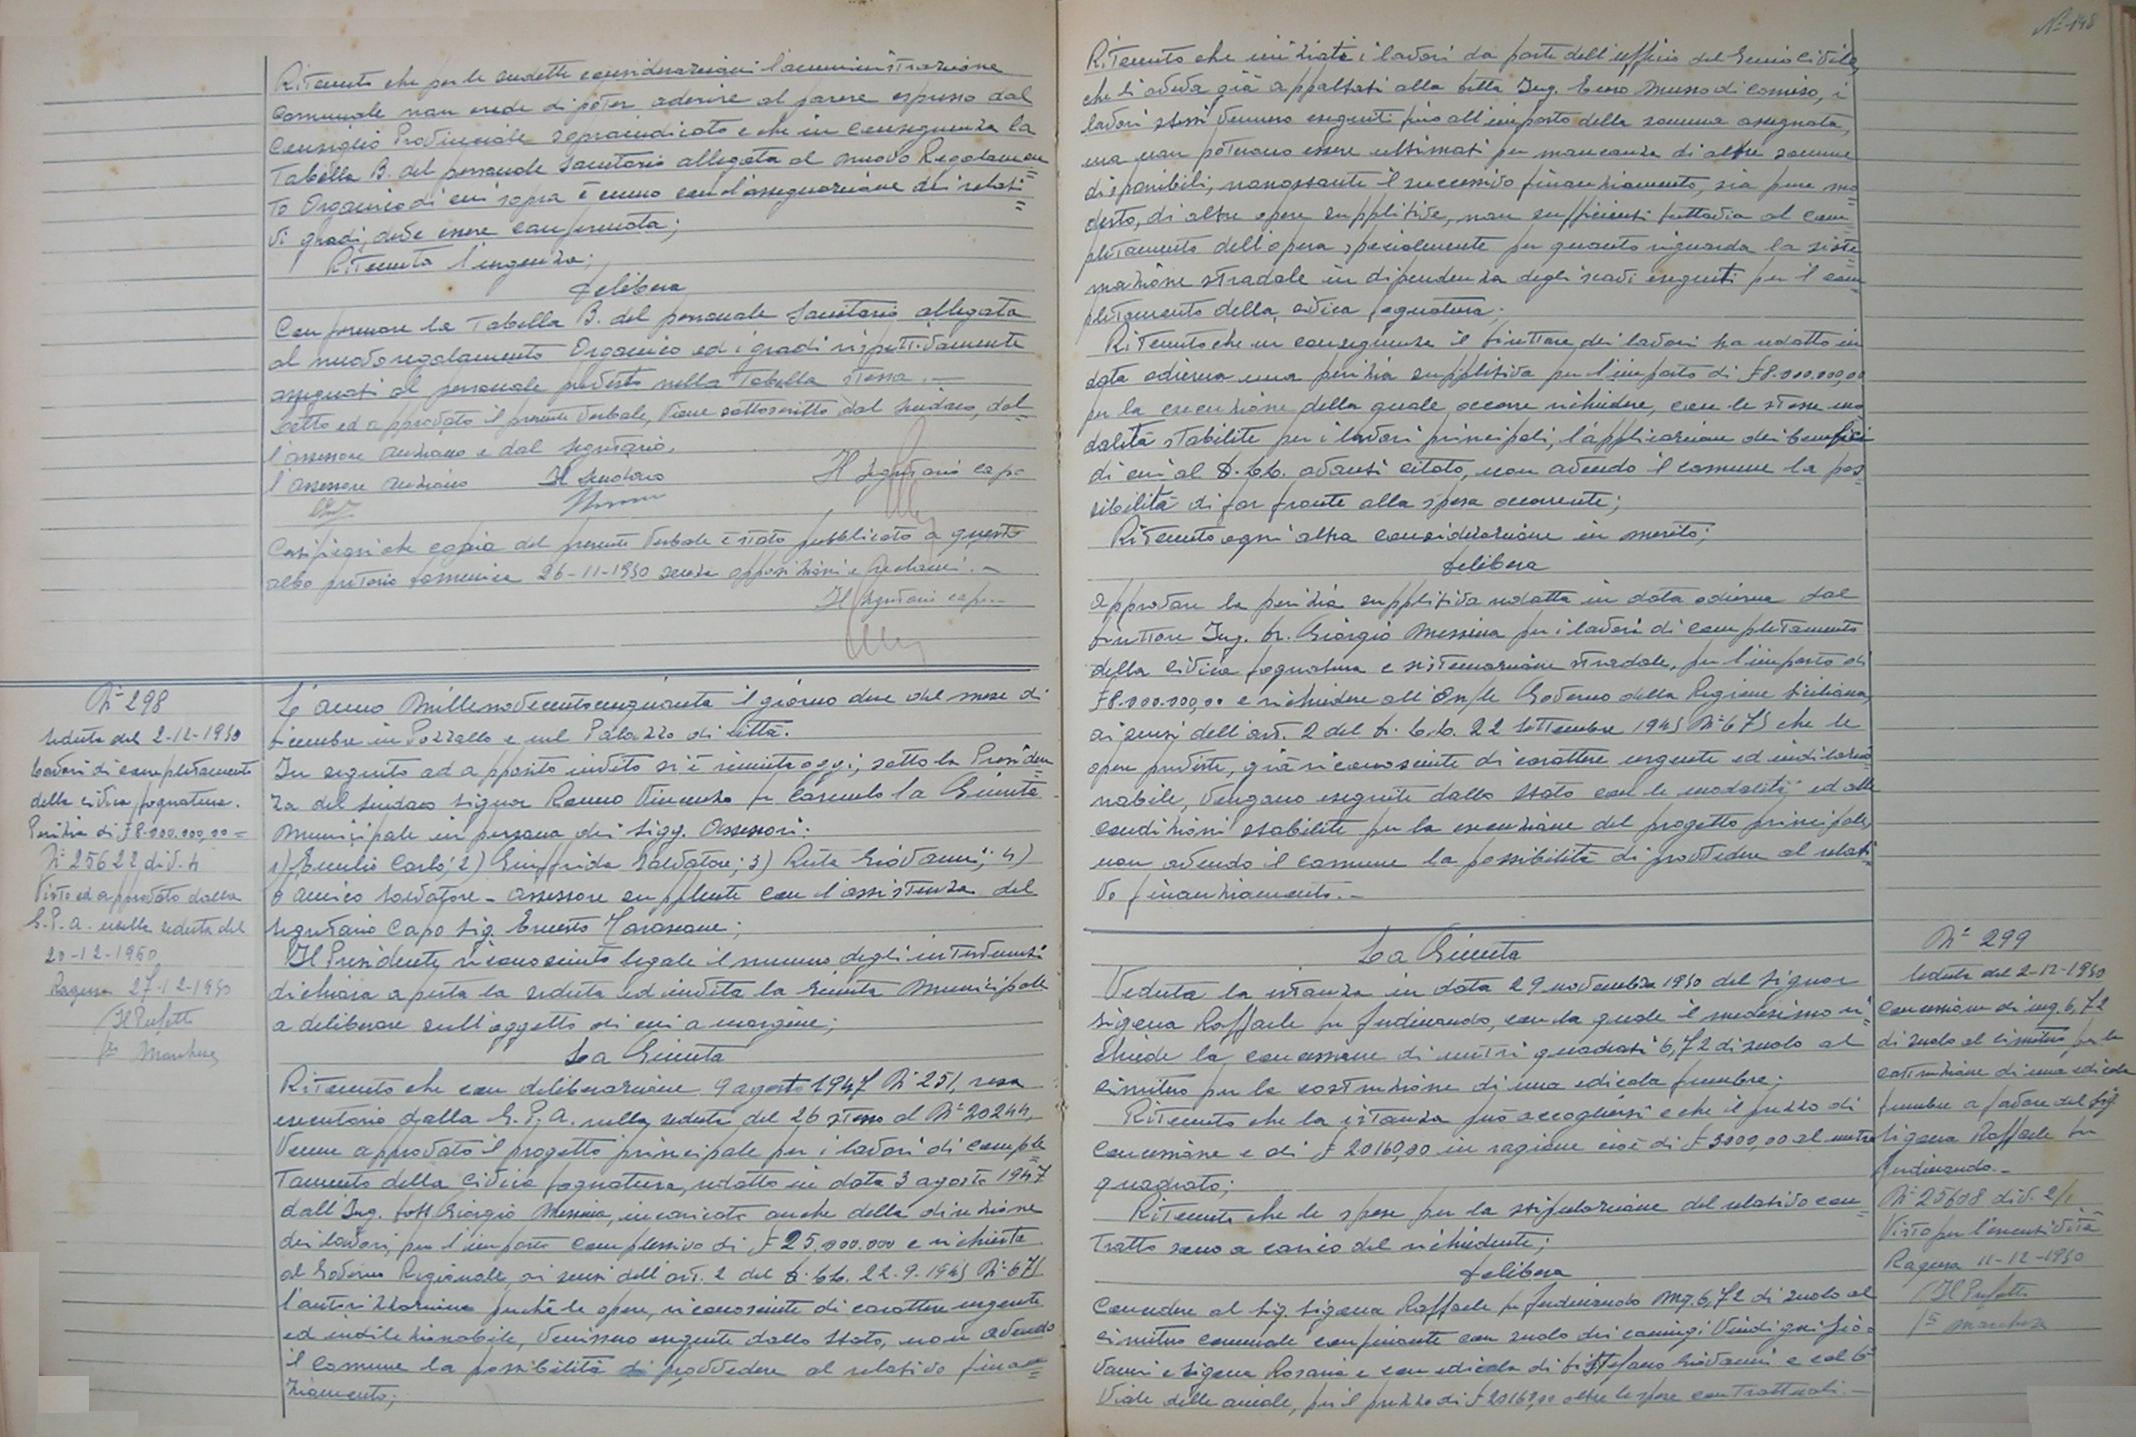 Ritenuto che per le suddette considerazioni l'amministrazione
Comunale non crede di poter aderire al parere espresso dal
Consiglio Provinciale sopraindicato e che in conseguenza la
Tabella B. del personale Sanitario allegata al nuovo Regolamen=
to Organico di cui sopra e con l'assegnazione dei relati=
vi gradi, deve essere confermata;
Ritenuta l'urgenza;
delibera
Confermare la Tabella B. del personale Sanitario allegata
al nuovo regolamento Organico ed i gradi rispettivamente
assegnati al personale previsto nella Tabella stessa.—
Letto ed approvato il presente verbale, viene sottoscritto dal Sindaco, dal=
l'assessore anziano e dal segretario.
l'assessore anziano Il Sindaco Il Segretario capo
Certificasi che copia del presente verbale è stato pubblicato a questo
albo pretorio domenica 26-11-1950 senza opposizioni e reclami.—
Il Segretario capo
N° 298
Seduta del 2-12-1950
Lavori di completamento
della civica fognatura.
Perizia di £ 8.000.000,00=
N° 25622 div. 4
Visto ed approvato dalla
G.P.A. nella seduta del
20-12-1950
Ragusa 27-12-1950
Il Prefetto
L'anno Millenovecentocinquanta il giorno due del mese di
Dicembre in Pozzallo e nel Palazzo di Città.
In seguito ad apposito invito si è riunita oggi, sotto la Presiden=
za del Sindaco Signor Vincenzo fu Carmelo la Giunta
Municipale in persona dei Sigg. Assessori:
1) Carlo; 2) Giuffrida Salvatore; 3) Ruta Giovanni; 4)
D'Amico Salvatore - assessore supplente con l'assistenza del
Segretario Capo Sig. Ernesto
Il Presidente, riconosciuto legale il numero degli intervenuti
dichiara aperta la seduta ed invita la Giunta Municipale
a deliberare sull'oggetto di cui a margine;
La Giunta
Ritenuto che con deliberazione 9 agosto 1947 N° 251, resa
esecutoria dalla G.P.A. nella seduta del 26 stesso al N° 20244,
venne approvato il progetto principale per i lavori di comple=
tamento della civica fognatura, redatto in data 3 agosto 1947
dall'Ing. Dott Giorgio Messina, incaricato anche della direzione
dei lavori, per l'importo complessivo di £ 25.000.000 e richiesta
al Governo Regionale, ai sensi dell'art. 2 del D.L.L. 22.9.1945 N° 675
l'autorizzazione perché le opere, riconosciute di carattere urgente
ed indilazionabile, venissero eseguite dallo Stato, non avendo
il Comune la possibilità di provvedere al relativo finan=
ziamento;
N° 148
Ritenuto che iniziati i lavori da parte dell'ufficio del Genio Civile,
che li aveva già appaltati alla ditta Ing. Musso di Comiso, i
lavori stessi vennero eseguiti fino all'importo della somma assegnata,
ma non poterono essere ultimati per mancanza di altre somme
disponibili, nonostante il successivo finanziamento, sia pure mo
desto, di altre opere suppletive, non sufficienti tuttavia al com=
pletamento dell'opera specialmente per quanto riguarda la siste=
mazione stradale in dipendenza degli scavi eseguiti per il com=
pletamento della civica fognatura;
Ritenuto che in conseguenza il Direttore dei lavori ha redatto in
data odierna una perizia suppletiva per l'importo di £ 8.000.000,00
per la esecuzione della quale occorre richiedere, con le stesse mo
dalità stabilite per i lavori principali, l'applicazione dei benefici
di cui al D.L.L. avanti citato, non avendo il Comune la pos=
sibilità di far fronte alla spesa occorrente;
Ritenuto ogni altra considerazione in merito;
delibera
Approvare la perizia suppletiva redatta in data odierna dal
Direttore Ing. Dr. Giorgio Messina per i lavori di completamento
della civica fognatura e sistemazione stradale, per l'importo di
£ 8.000.000,00 e richiedere all'On/le Governo della Regione Siciliana,
ai sensi dell'art. 2 del D.L.L. 22 Settembre 1945 N° 675 che le
opere previste, già riconosciute di carattere urgente ed indilazio=
nabile, vengano eseguite dallo Stato con le modalità ed alle
condizioni stabilite per la esecuzione del progetto principale,
non avendo il Comune la possibilità di provvedere al relati=
vo finanziamento.—
La Giunta
Veduta la istanza in data 29 novembre 1950 del Signor
Sigona Raffaele fu Ferdinando, con la quale il medesimo ri=
chiede la concessione di metri quadrati 6,72 di suolo al
cimitero per la costruzione di una edicola funebre;
Ritenuto che la istanza può accogliersi e che il prezzo di
concessione è di £ 20160,00 in ragione cioè di £ 3000,00 al metro
quadrato;
Ritenuto che le spese per la stipulazione del relativo con=
tratto sono a carico del richiedente;
delibera
Concedere al Sig. Sigona Raffaele fu Ferdinando Mq. 6,72 di suolo al
cimitero comunale confinante con suolo dei coniugi Vindigni Gio=
vanni e Sigona Rosaria e con edicola di Di Stefano Giovanni e col 6°
Viale delle aiuole, per il prezzo di £ 20160,00 oltre le spese contrattuali.—
N° 299
Seduta del 2-12-1950
Concessione di mq. 6,72
di suolo al cimitero per la
costruzione di una edicola
funebre a favore del Sig.
Sigona Raffaele fu
Ferdinando.—
N° 25608 div. 2/1
Visto per l'esecutività
Ragusa 11-12-1950
Il Prefetto